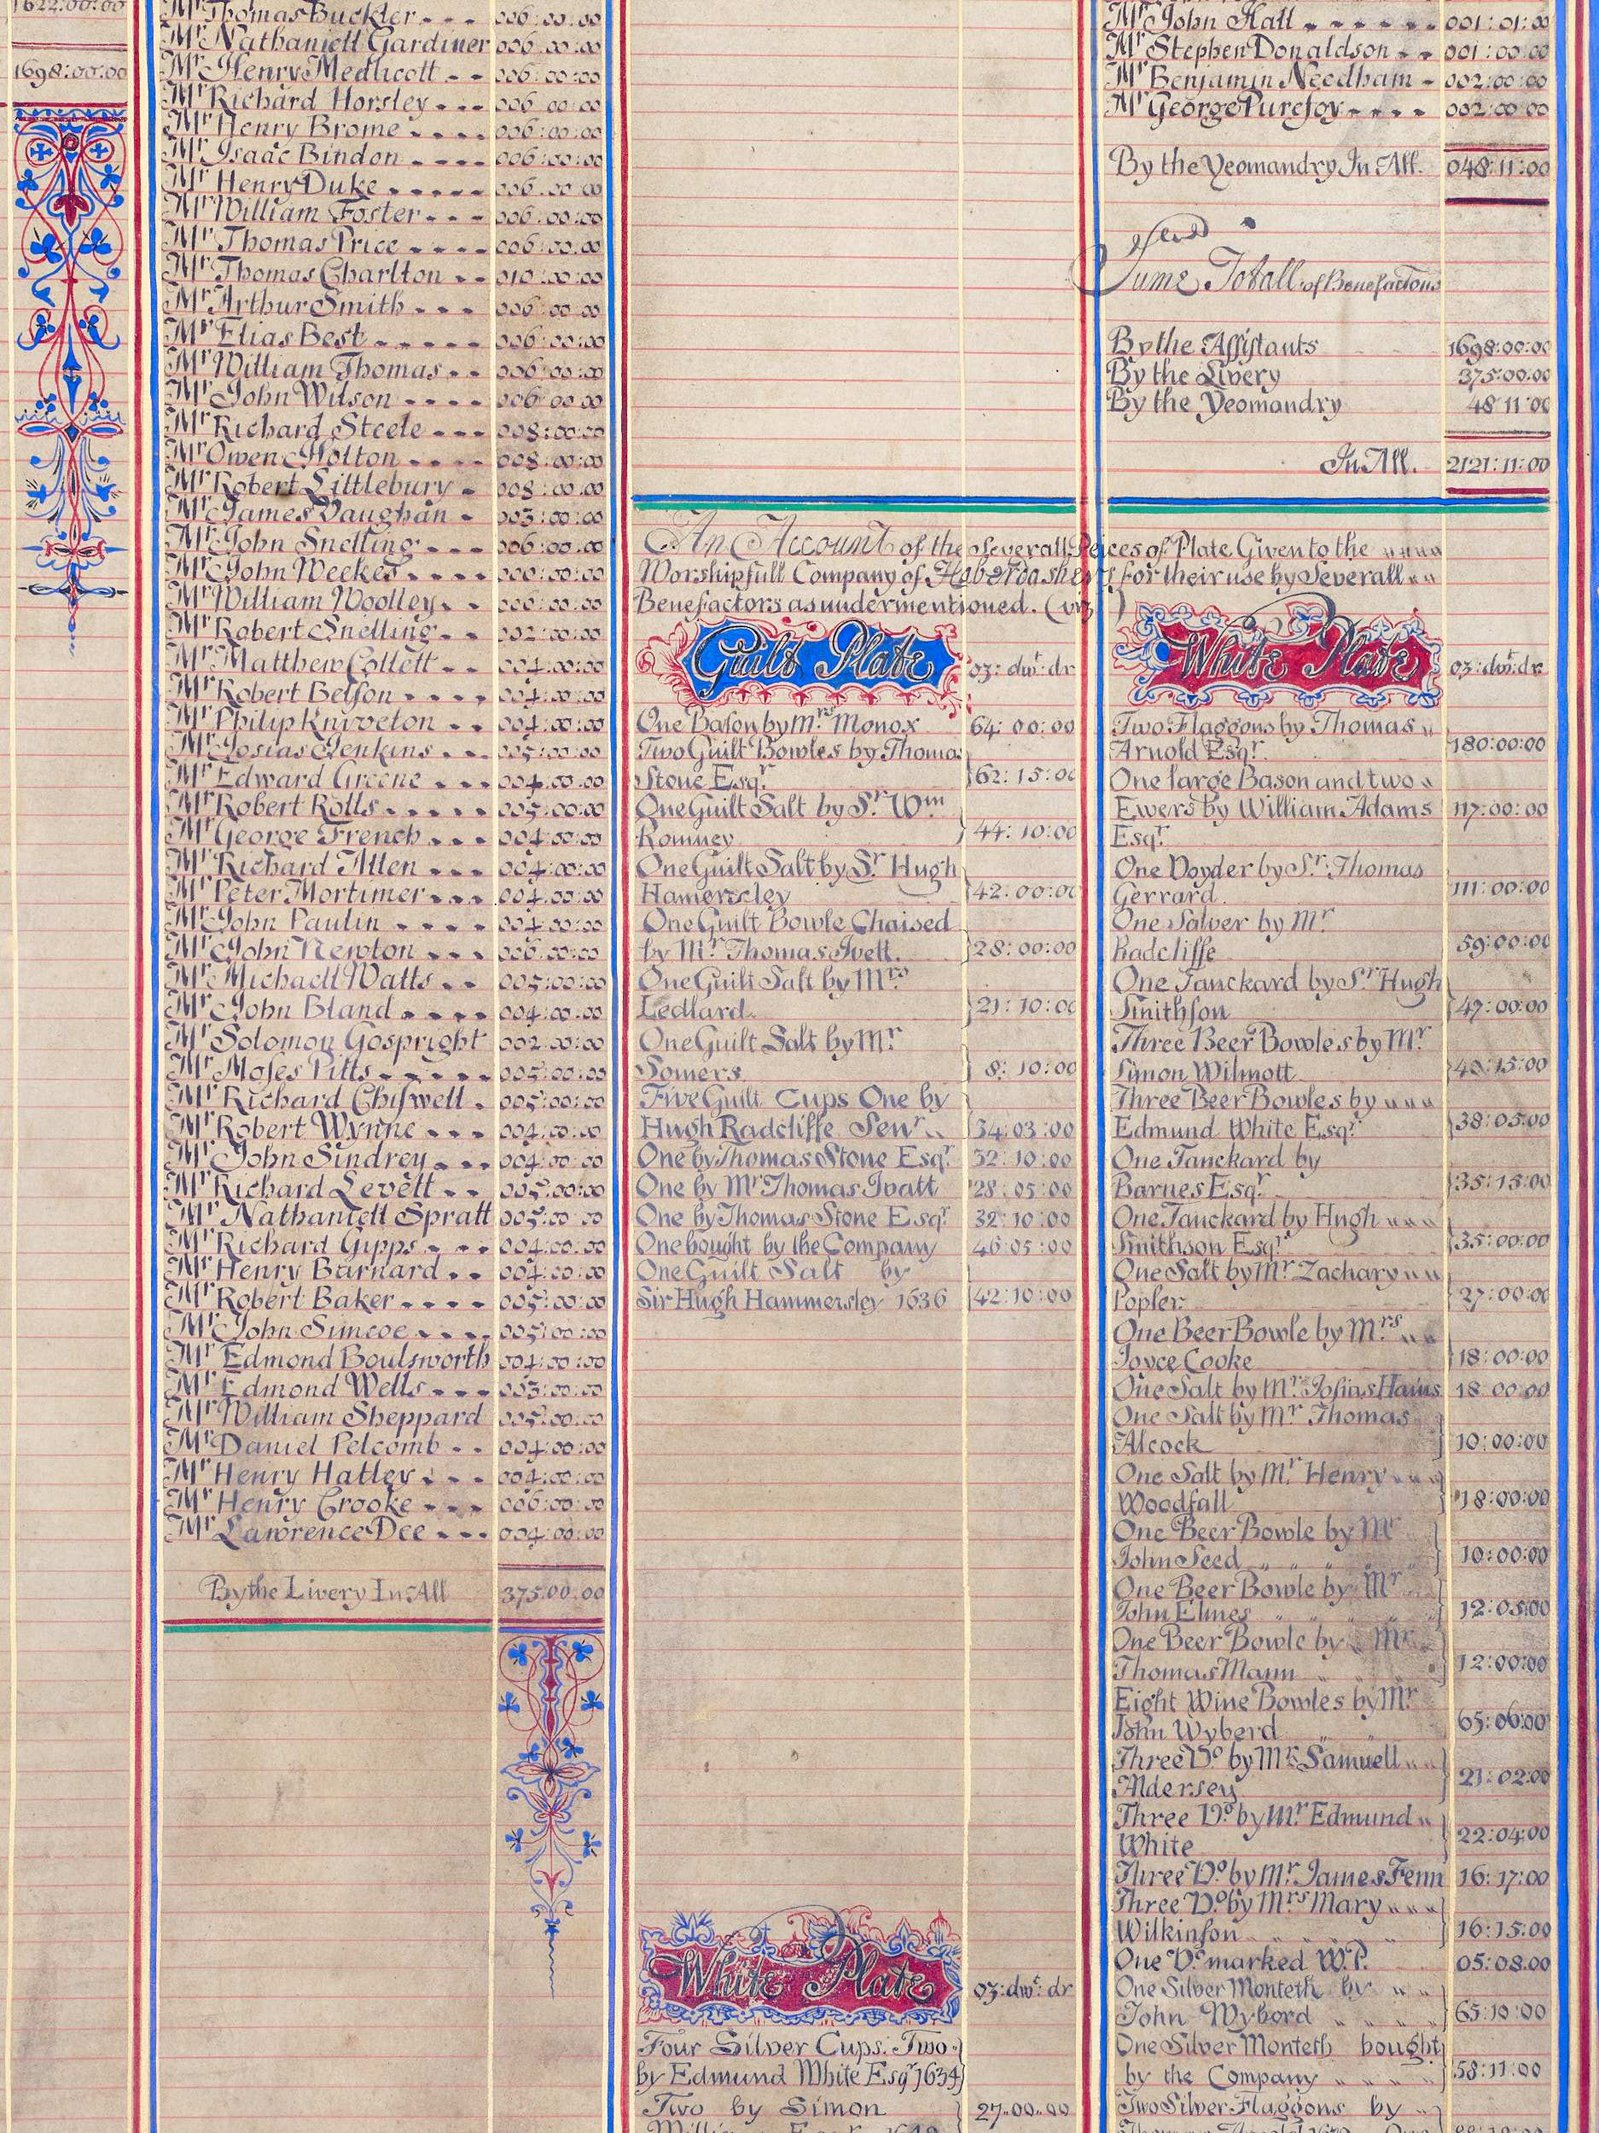 1622:00:00
1698:00:00
Mr Thomas Buckler 006:00:00
Mr Nathaniell Gardiner 006:00:00
Mr Henry Medlicott 006:00:00
Mr Richard Horsley 006:00:00
Mr Henry Brome 006:00:00
Mr Isaac Bindon 006:00:00
Mr Henry Duke 006:00:00
Mr William Foster 006:00:00
Mr Thomas Price 006:00:00
Mr Thomas Charlton 010:00:00
Mr Arthur Smith 006:00:00
Mr Elias Best 006:00:00
Mr William Thomas 006:00:00
Mr John Wilson 006:00:00
Mr Richard Steele 008:00:00
Mr Owen Holton 008:00:00
Mr Robert Littlebury 008:00:00
Mr James Vaughan 003:00:00
Mr John Snelling 006:00:00
Mr John Weekes 006:00:00
Mr William Woolley 006:00:00
Mr Robert Snelling 002:00:00
Mr Matthew Collett 004:00:00
Mr Robert Belson 004:00:00
Mr Philip Kniveton 004:00:00
Mr Josias Jenkins 005:00:00
Mr Edward Greene 004:00:00
Mr Robert Rolls 005:00:00
Mr George French 004:00:00
Mr Richard Allen 004:00:00
Mr Peter Mortimer 004:00:00
Mr John Paulin 004:00:00
Mr John Newton 006:00:00
Mr Michaell Watts 005:00:00
Mr John Bland 004:00:00
Mr Solomon Gospright 002:00:00
Mr Moses Pitts 005:00:00
Mr Richard Chiswell 005:00:00
Mr Robert Wynne 004:00:00
Mr John Sindrey 004:00:00
Mr Richard Levett 005:00:00
Mr Nathaniell Spratt 005:00:00
Mr Richard Gipps 004:00:00
Mr Henry Barnard 004:00:00
Mr Robert Baker 005:00:00
Mr John Simcoe 005:00:00
Mr Edmond Boulsworth 004:00:00
Mr Edmond Wells 003:00:00
Mr William Sheppard 005:00:00
Mr Daniel Pelcomb 004:00:00
Mr Henry Hatley 004:00:00
Mr Henry Crooke 006:00:00
Mr Lawrence Dee 004:00:00
By the Livery In All 375:00:00
Mr John Hall 001:01:00
Mr Stephen Donaldson 001:00:00
Mr Benjamin Needham 002:00:00
Mr George Purefoy 002:00:00
By the Yeomandry In All. 048:11:00
Sume Totall of Benefactons
By the Assistants 1698:00:00
By the Livery 375:00:00
By the Yeomandry 48 11:00
In All. 2121:11:00
An Account of the Severall Peices of Plate Given to the
Worshipfull Company of Haberdashers for their use by Severall
Benefactors as undermentioned. (viz)
Guilt Plate oz: dwt: dr
One Bason by Mrs Monox 64:00:00
Two Guilt Bowles by Thomas
Stone Esqr. 62:15:00
One Guilt Salt by Sr. Wm
Romney 44:10:00
One Guilt Salt by Sr. Hugh
Hamersley 42:00:00
One Guilt Bowle Chaised
by Mr. Thomas Ivett. 28:00:00
One Guilt Salt by Mrs
Ledlard. 21:10:00
One Guilt Salt by Mr
Somers. 8:10:00
Five Guilt Cups One by
Hugh Radcliffe Senr. 34:03:00
One by Thomas Stone Esqr. 32:10:00
One by Mr Thomas Ivatt 28:05:00
One by Thomas Stone Esqr. 32:10:00
One bought by the Company 46:05:00
One Guilt Salt by
Sir Hugh Hammersley 1636 42:10:00
White Plate oz: dwt: dr
Four Silver Cups. Two
by Edmund White Esqr 1634
Two by Simon 27..00..00
White Plate oz: dwt: dr
Two Flaggons by Thomas
Arnold Esqr. 180:00:00
One large Bason and two
Ewers by William Adams 117:00:00
Esqr.
One Voyder by Sr. Thomas
Gerrard. 111:00:00
One Salver by Mr
Radcliffe 59:00:00
One Tanckard by Sr. Hugh
Smithson 47:00:00
Three Beer Bowles by Mr
Simon Wilmott 40:15:00
Three Beer Bowles by
Edmund White Esqr. 38:05:00
One Tanckard by
Barnes Esqr. 35:15:00
One Tanckard by Hugh
Smithson Esqr. 35:00:00
One Salt by Mr Zachary
Popler. 27:00:00
One Beer Bowle by Mrs
Joyce Cooke 18:00:00
One Salt by Mr. Josias Hains 18:00:00
One Salt by Mr Thomas
Alcock 10:00:00
One Salt by Mr. Henry
Woodfall 18:00:00
One Beer Bowle by Mr
John Seed 10:00:00
One Beer Bowle by Mr
John Elmes 12:05:00
One Beer Bowle by Mr.
Thomas Mann 12:00:00
Eight Wine Bowles by Mr
John Wyberd 65:06:00
Three Do by Mr. Samuell
Aldersey 21:02:00
Three Do. by Mr. Edmund
White 22:04:00
Three Do by Mr. James Fenn 16:17:00
Three Do. by Mrs Mary
Wilkinson 16:15:00
One Do. marked W.P. 05:08.00
One Silver Monteth by
John Wybord 65:10:00
One Silver Monteth bought
by the Company 58:11:00
Two Silver Flaggons by